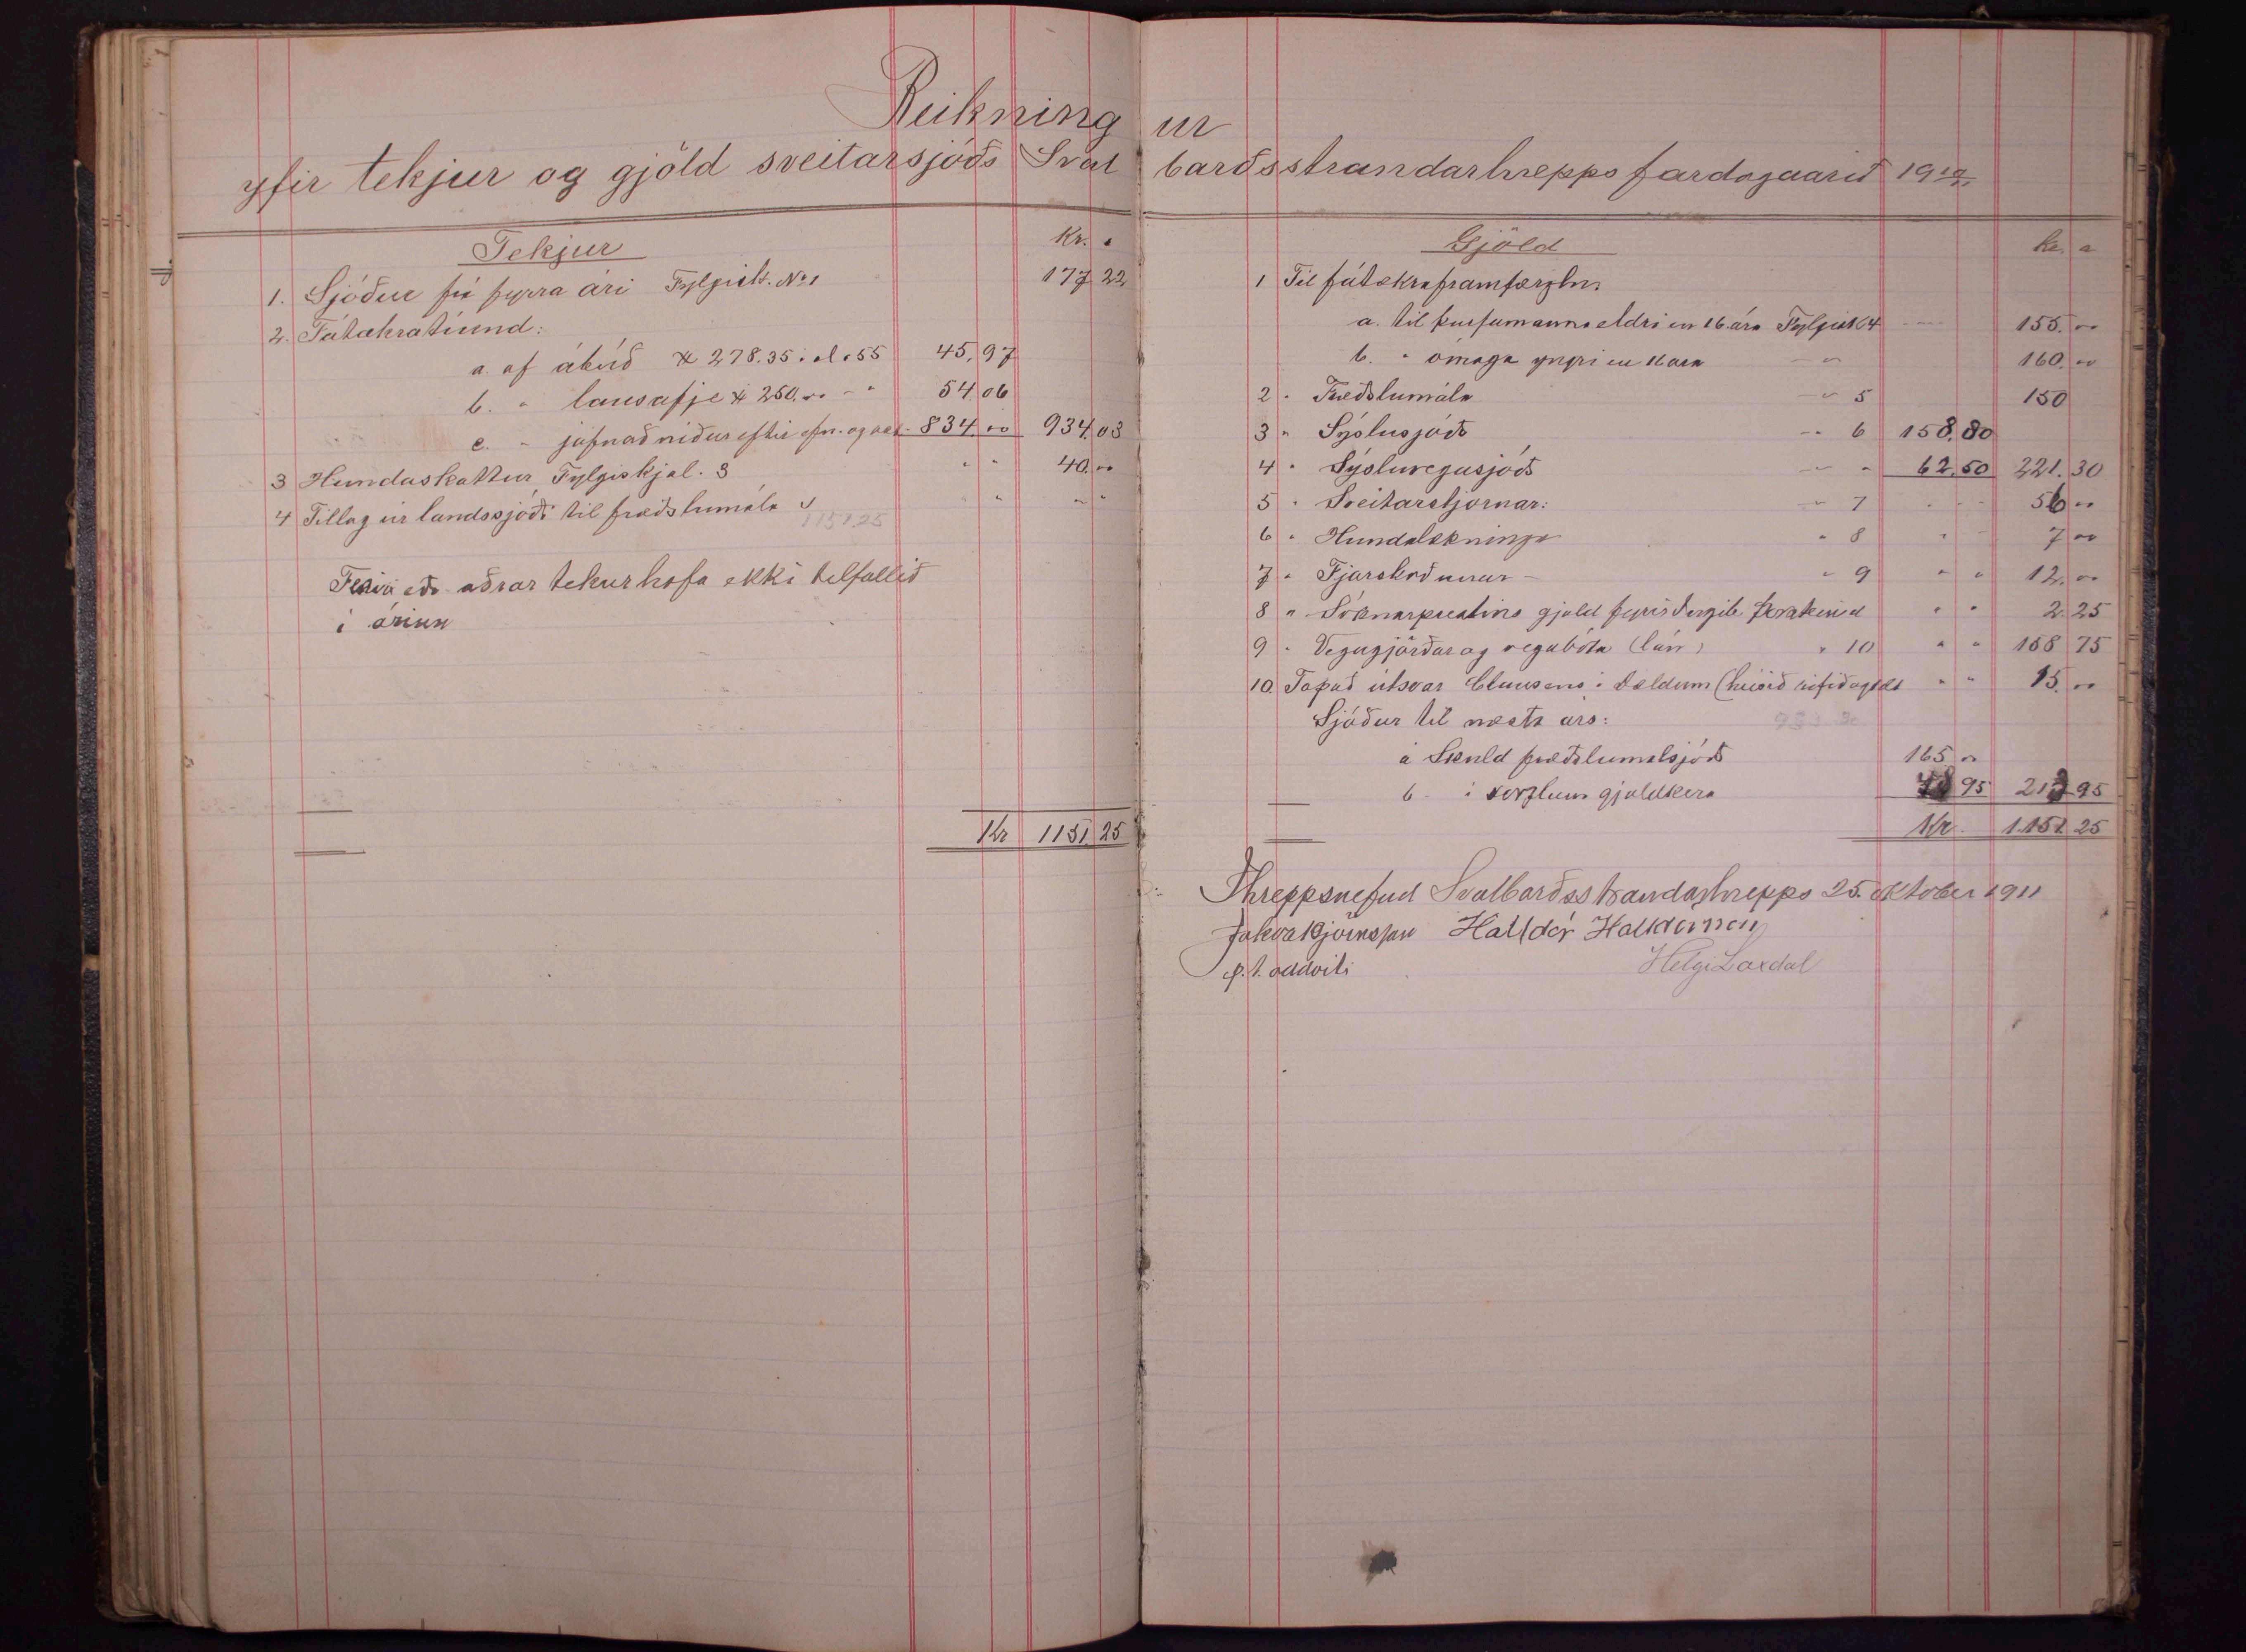 Reikningur
yfir tekjur og gjöld sveitarsjóðs Svalbarðsstrandarhrepps fardagaarið 19
Tekjur Kr. a
1. Sjóður frá fyrra ári Fylgisk. No 1 177 22
2. Fátækratíund:
a. af ábúð 278.35 al. a 55 45,97
b. " lausafje 250.00 - " 54 06
c. " jafnað niður eftir efn. og 834 00 934.03
3 Hundaskattur Fylgiskjal. 3 " " 40.00
4 Tillag úr landssjóði til fræðslumála " " " "
1151 25
Fleiri eða aðrar tekur hafa ekki tilfallið
i árinu
Kr 1151 25
Gjöld Kr. a
1 Til fátækraframfærzlu:
a. til þurfamanna eldri en 16 ára Fylgisk 4 155.00
b. " ómaga yngri en 16 ara " 160.00
2 " Fræðslumála " 5 150
3 " Sýslusjóðs " 6 158.80
4 " Sýsluvegasjóðs " " 62.50 221.30
5 " Sveitarstjornar: " 7 56 00
6 " Hundalækninga " 8 7 00
7 " Fjárskoðunar - " 9 " " 12.00
8 " Sóknarprestins gjald fyrir " " 2.25
9 " Vegagjörðar og vegabóta (lán) " 10 " " 158 75
10. Tapað útsvar Clausens i Dældum " " 15.00
Sjóður til næsta árs:
a Skuld fræðslumalsjóðs 165 00
b - i vorzlum gjaldkera 95 95
Kr. 1.151 25
Í hreppsnefnd Svalbarðsstrandarhrepps 25. oktober 1911
Halldór Halldorsson
p.t. oddviti Helgi Laxdal